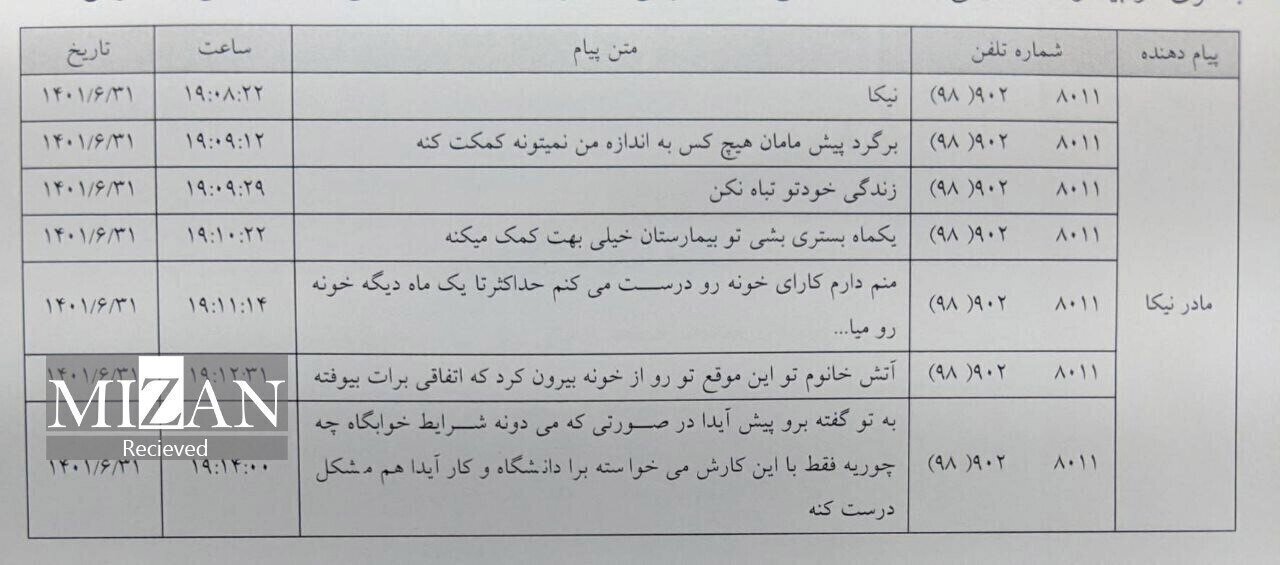 پیام دهنده	شماره تلفن	متن پیام	ساعت	تاریخ
مادر نیکا	(۹۸ )۹۰۲ ۸۰۱۱	نیکا	۱۹:۰۸:۲۲	۱۴۰۱/۶/۳۱
(۹۸ )۹۰۲ ۸۰۱۱	برگرد پیش مامان هیچ کس به اندازه من نمیتونه کمکت کنه	۱۹:۰۹:۱۲	۱۴۰۱/۶/۳۱
(۹۸ )۹۰۲ ۸۰۱۱	زندگی خودتو تباه نکن	۱۹:۰۹:۲۹	۱۴۰۱/۶/۳۱
(۹۸ )۹۰۲ ۸۰۱۱	یکماه بستری بشی تو بیمارستان خیلی بهت کمک میکنه	۱۹:۱۰:۲۲	۱۴۰۱/۶/۳۱
(۹۸ )۹۰۲ ۸۰۱۱	منم دارم کارای خونه رو درست می کنم حداکثرتا یک ماه دیگه خونه
رو میا...	۱۹:۱۱:۱۴	۱۴۰۱/۶/۳۱
(۹۸ )۹۰۲ ۸۰۱۱	آتش خانوم تو این موقع تو رو از خونه بیرون کرد که اتفاقی برات بیوفته	۱۹:۱۲:۳۱	۱۴۰۱/۶/۳۱
(۹۸ )۹۰۲ ۸۰۱۱	به تو گفته برو پیش آیدا در صورتی که می دونه شرایط خوابگاه چه
چوریه فقط با این کارش می خواسته برا دانشگاه و کار آیدا هم مشکل
درست کنه	۱۹:۱۴:۰۰	۱۴۰۱/۶/۳۱
MIZAN
Recieved